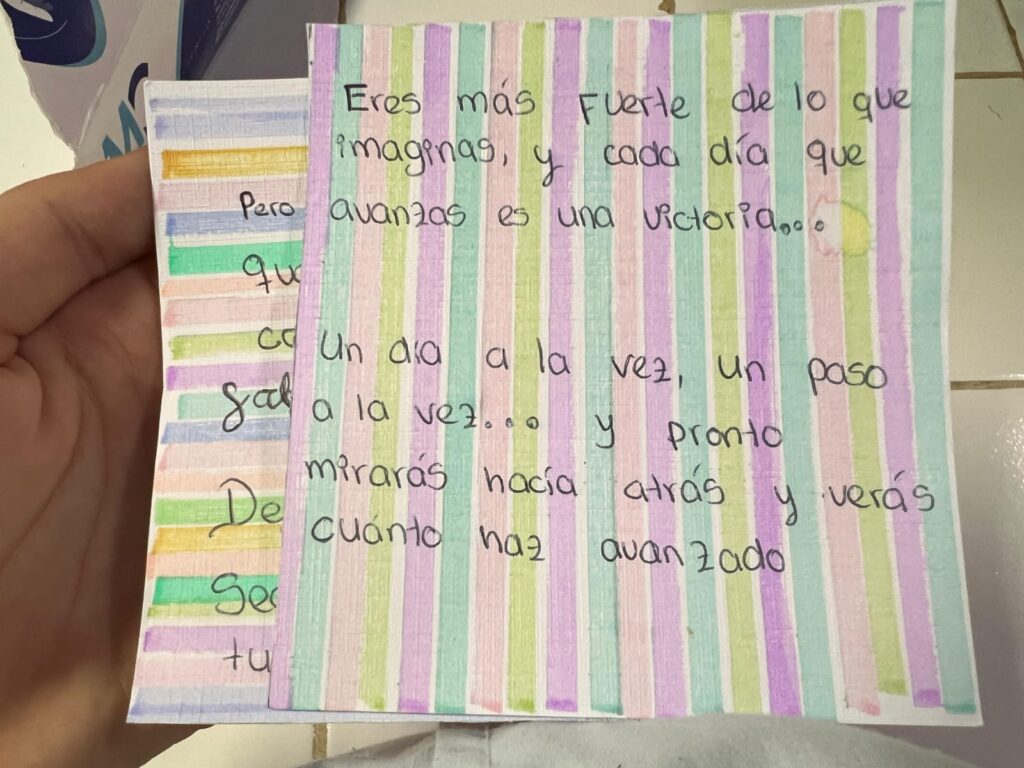 Eres más Fuerte de lo que
imaginas, y cada día que
avanzas es una victoria...
Un día a la vez, un paso
a la vez... y pronto
mirarás hacía atrás y verás
cuánto haz avanzado
Pero
tu